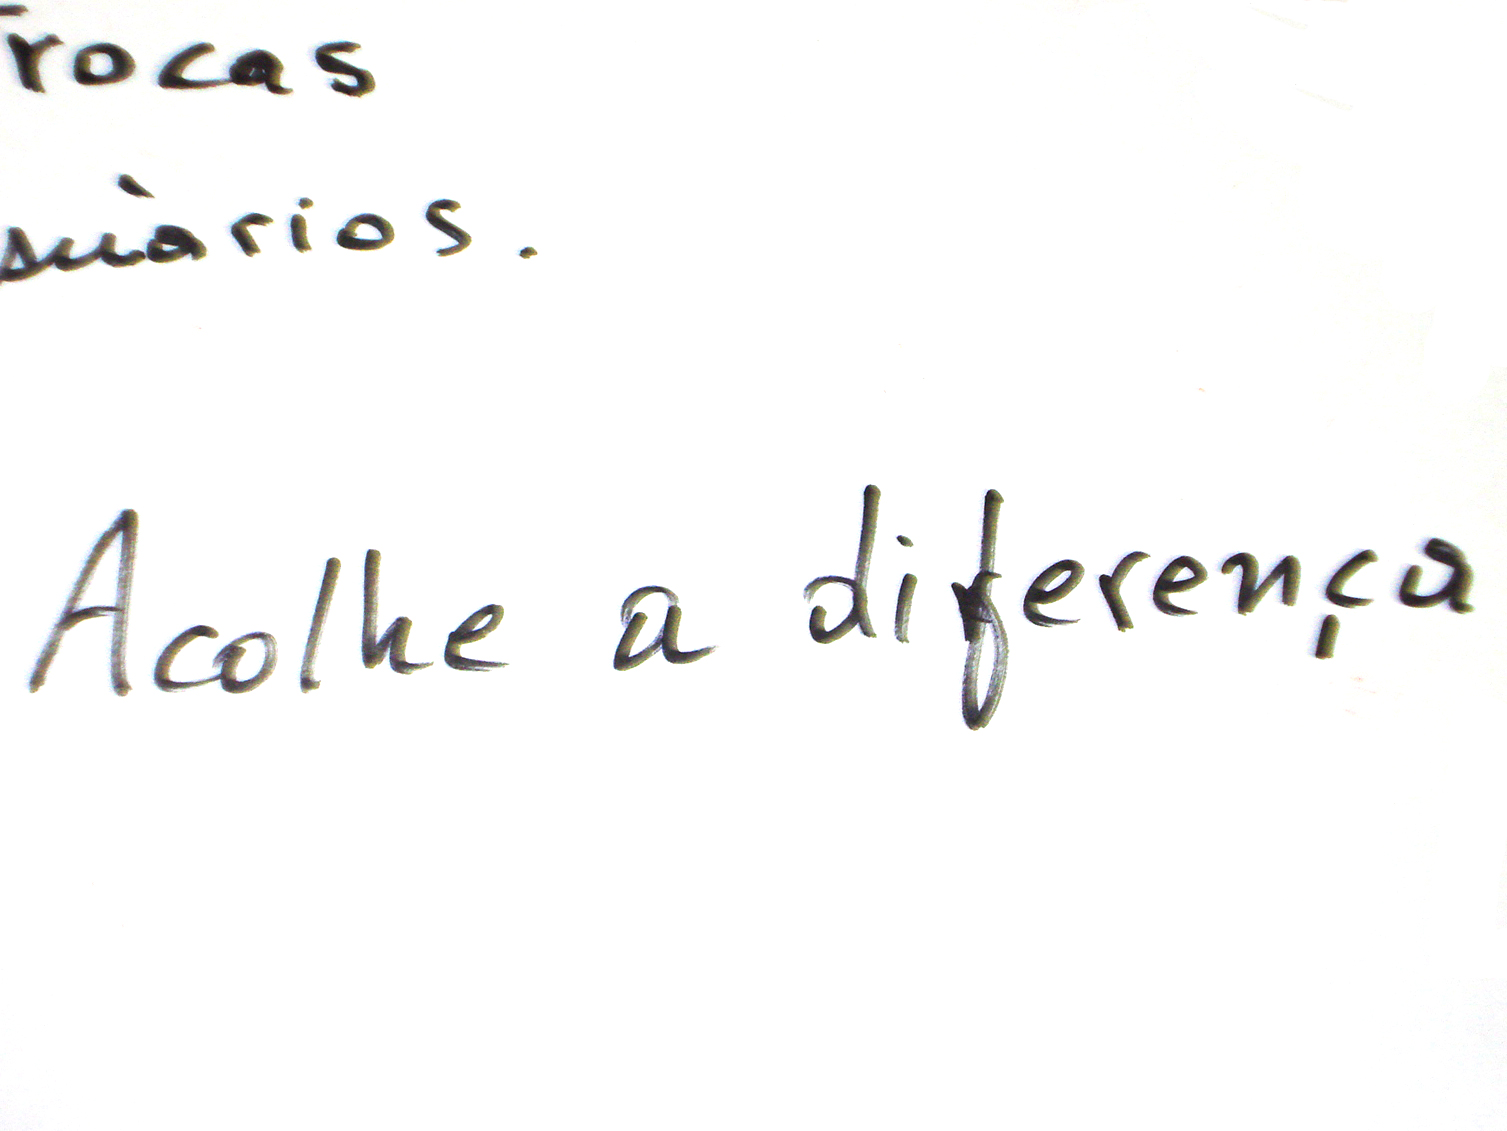 Trocas
suàrios.
Acolhe a diferença